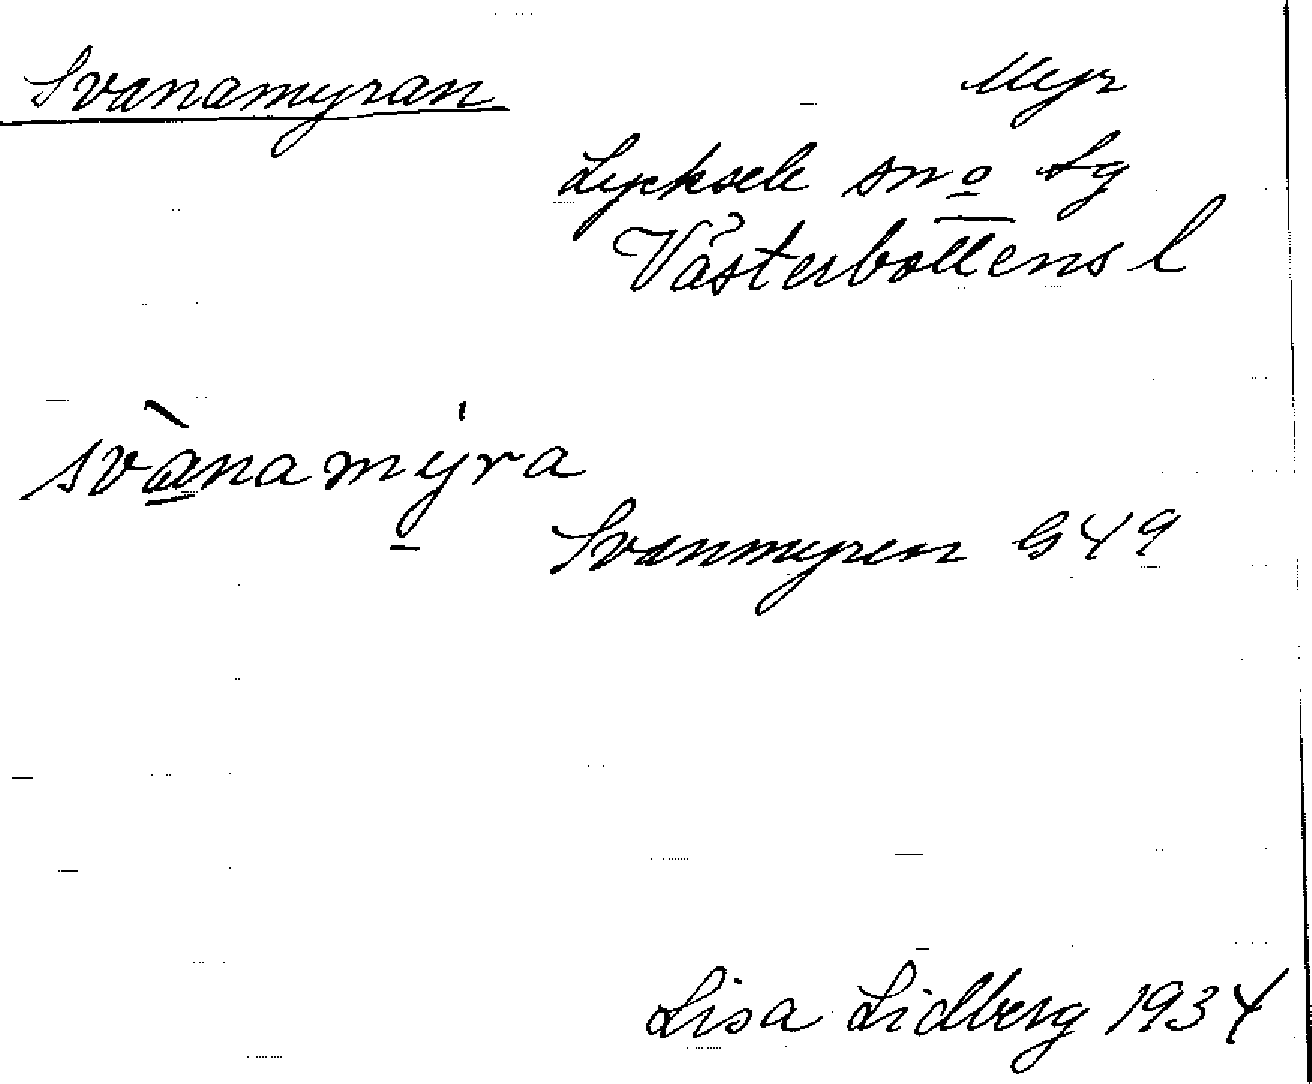 Svanamyran
Myr
Lycksele sn o tg
Västerbottens l
svànamýra
Svanmyren G49
Lisa Lidberg 1934